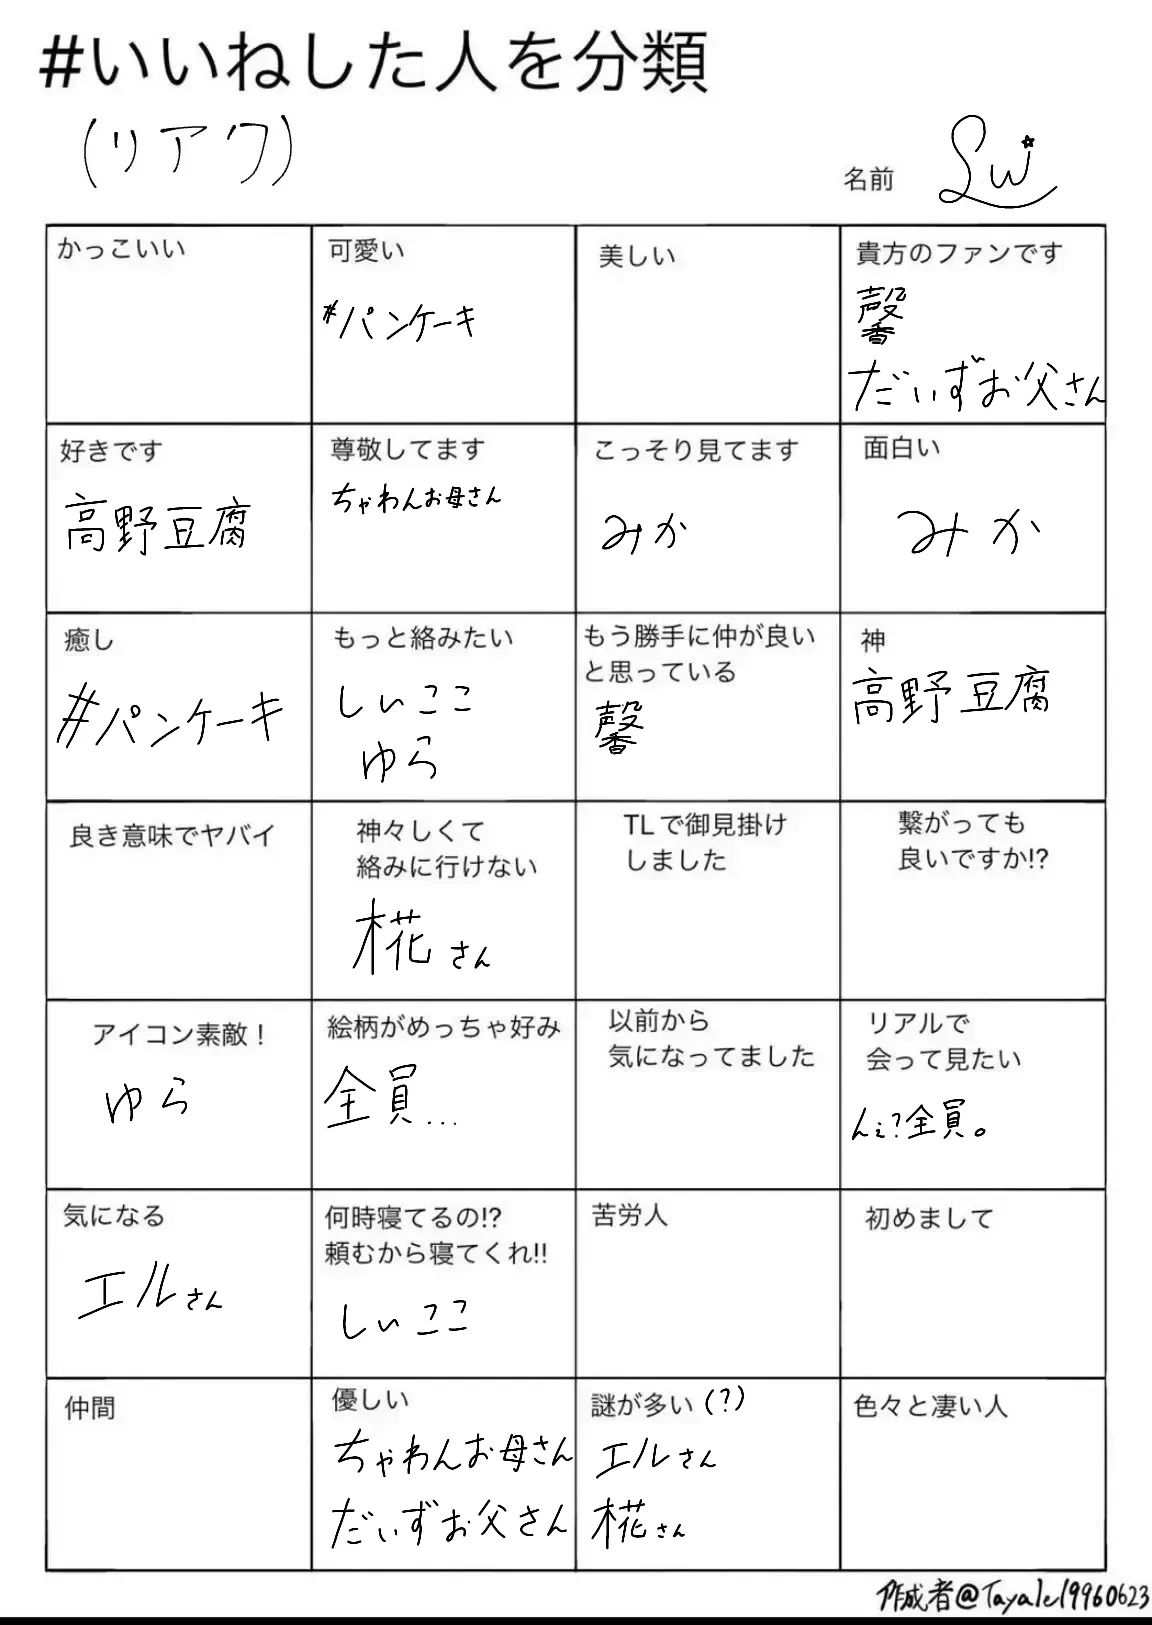 #いいねした人を分類
(リアク)
名前 Lwi
かっこいい
可愛い
#パンケーキ
美しい
貴方のファンです
馨
だいずお父さん
好きです
高野豆腐
尊敬してます
ちゃわんお母さん
こっそり見てます
みか
面白い
みか
癒し
#パンケーキ
もっと絡みたい
しいここ
ゆら
もう勝手に仲が良い
と思っている
馨
神
高野豆腐
良き意味でヤバイ
神々しくて
絡みに行けない
椛さん
TLで御見掛け
しました
繋がっても
良いですか!?
アイコン素敵!
ゆら
絵柄がめっちゃ好み
全員...
以前から
気になってました
リアルで
会って見たい
んぇ?全員。
気になる
エルさん
何時寝てるの!?
頼むから寝てくれ!!
しいここ
苦労人
初めまして
仲間
優しい
ちゃわんお母さん
だいずお父さん
謎が多い(?)
エルさん
椛さん
色々と凄い人
作成者@Tayale19960623